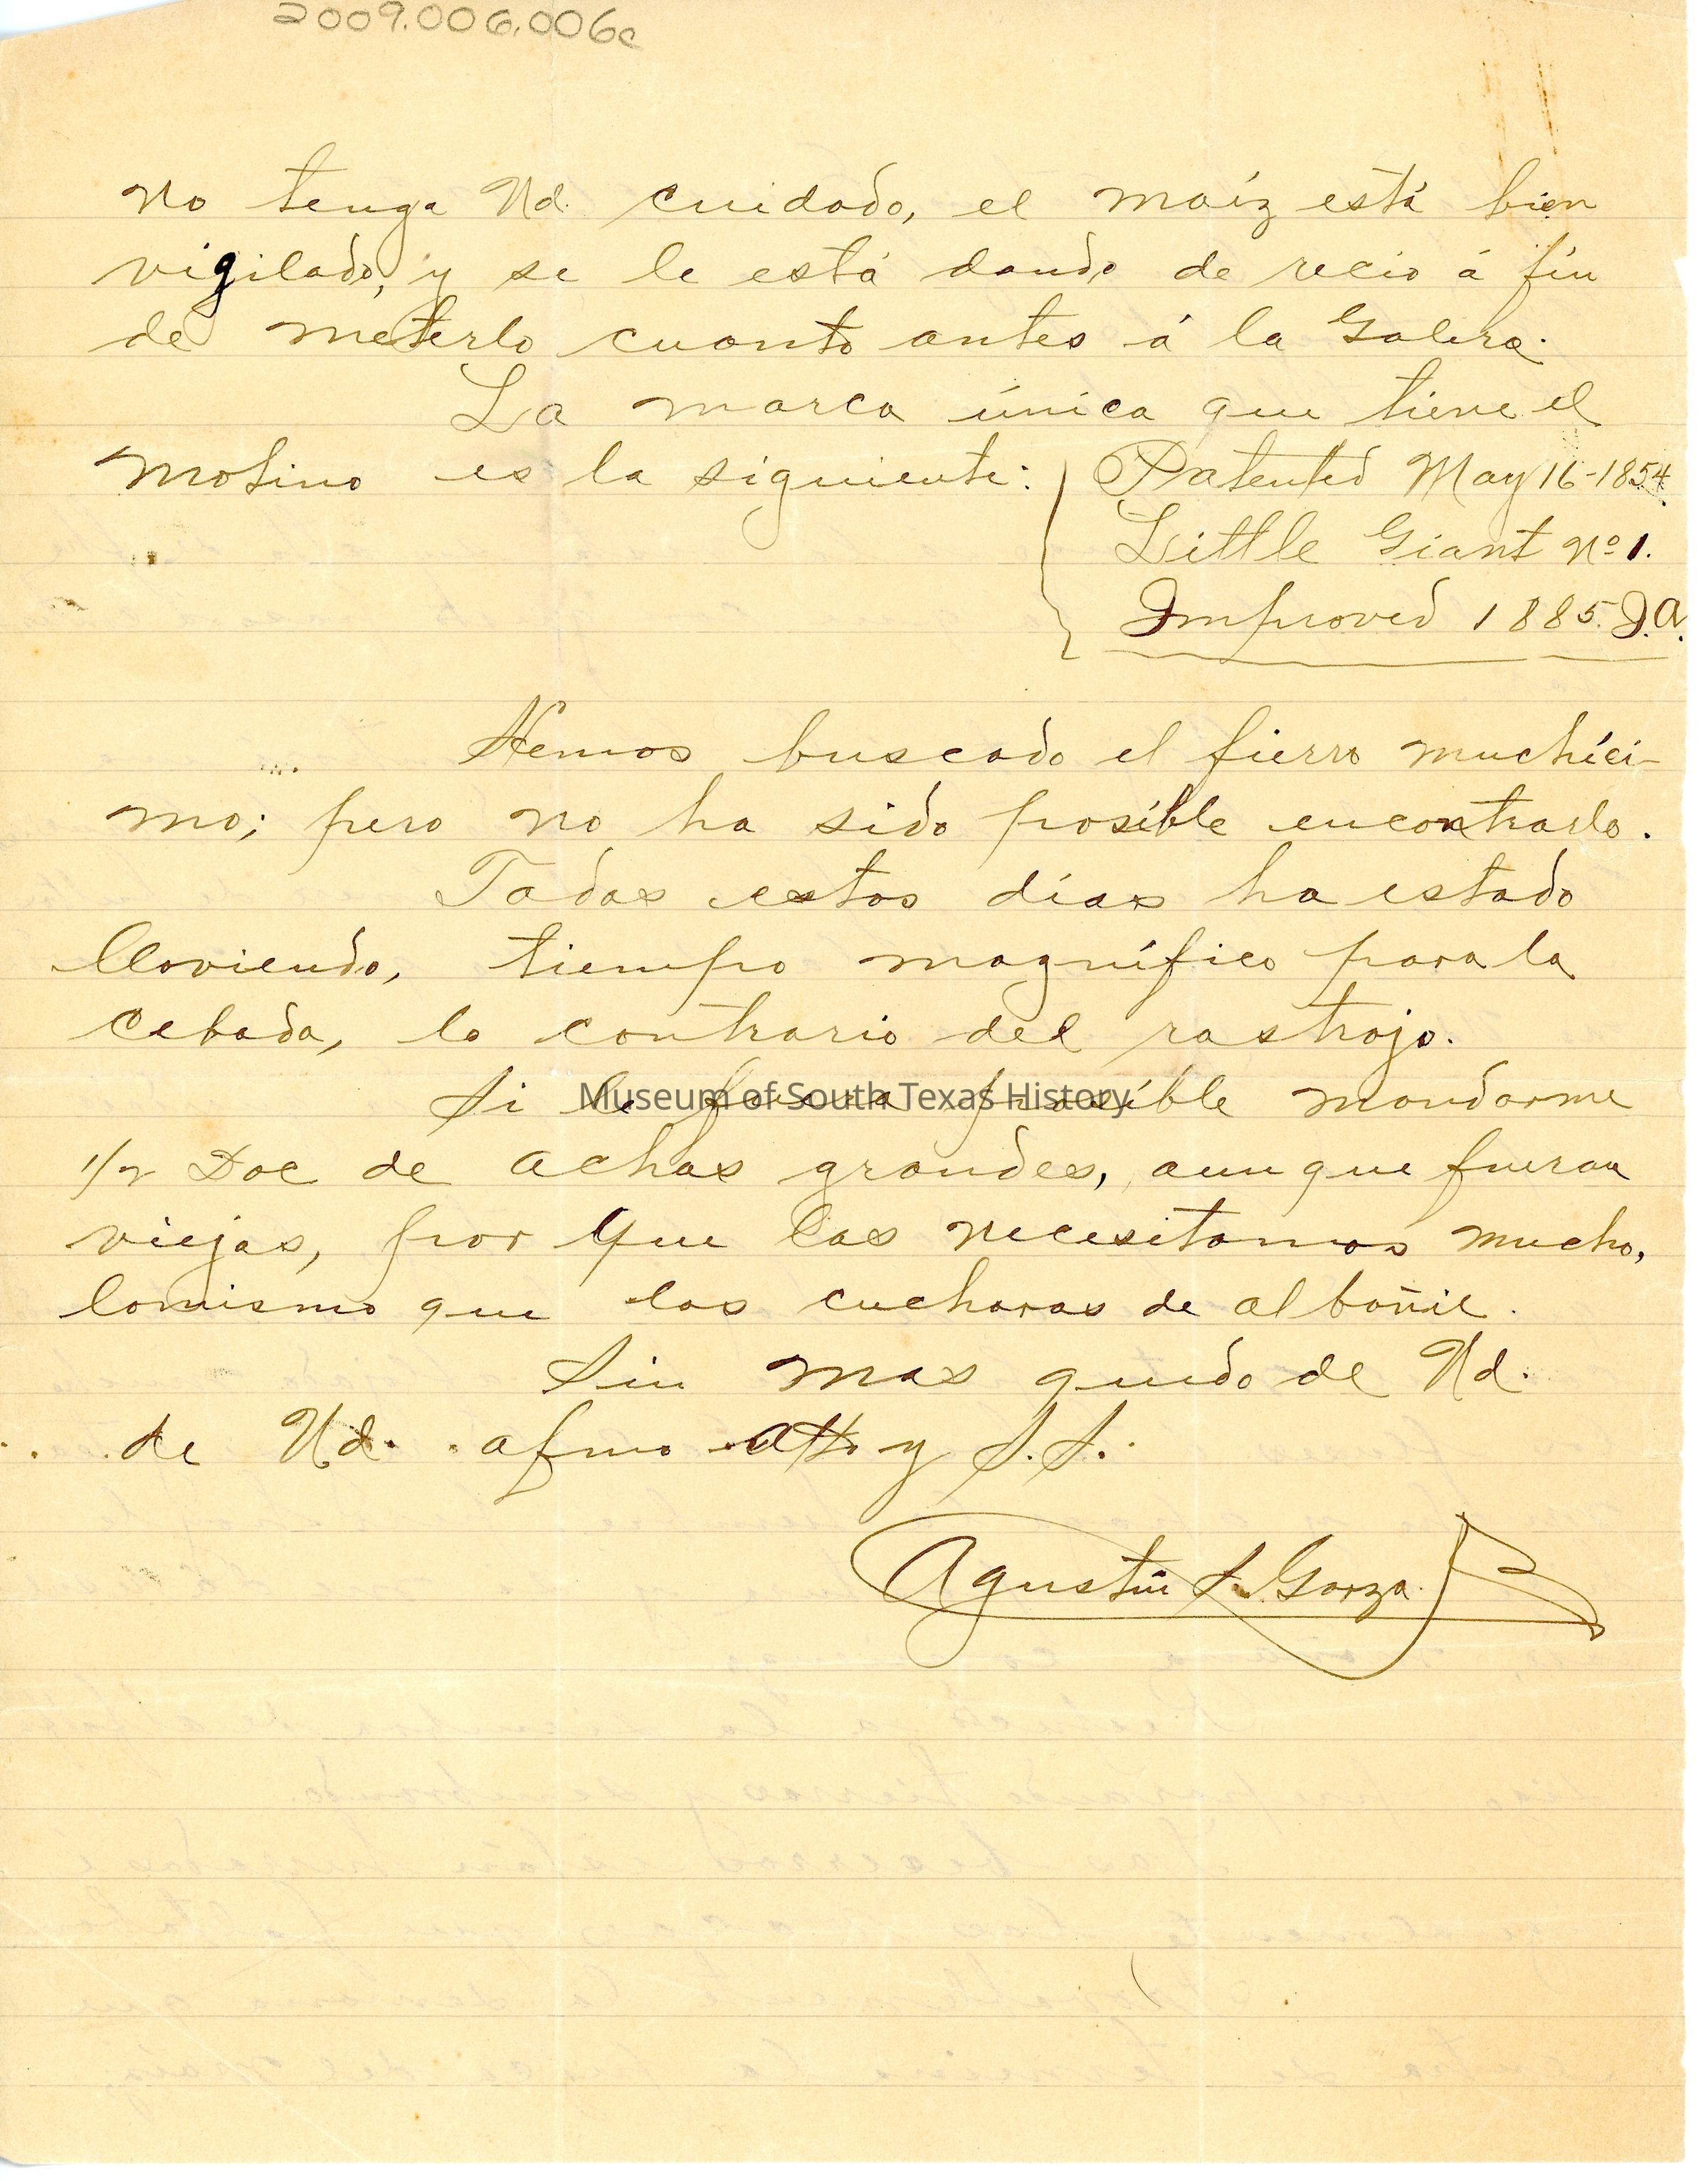 2009.006.006c
no tenga Ud. cuidado, el maíz está bien
vigilado, y se le está dando de recio á fin
de meterlo cuanto antes á la Galera.
La marca única que tiene el
Molino es la siguiente: Patented May 16-1854.
Little Giant Nº 1.
Improved 1885. J.A.
Hemos buscado el fierro muchíci-
mo; pero no ha sido posible encontrarlo.
Todos estos días ha estado
lloviendo, tiempo magnífico para la
cebada, lo contrario del rastrojo.
Si le fuera posible mandarme
1/2 Doc de achas grandes, aunque fueran
viejas, por que las necesitamos mucho,
lomismo que las cucharas de albañil.
Sin mas quedo de Ud.
de Ud. afmo atto y S.S.
Agustín S. Garza
Museum of South Texas History